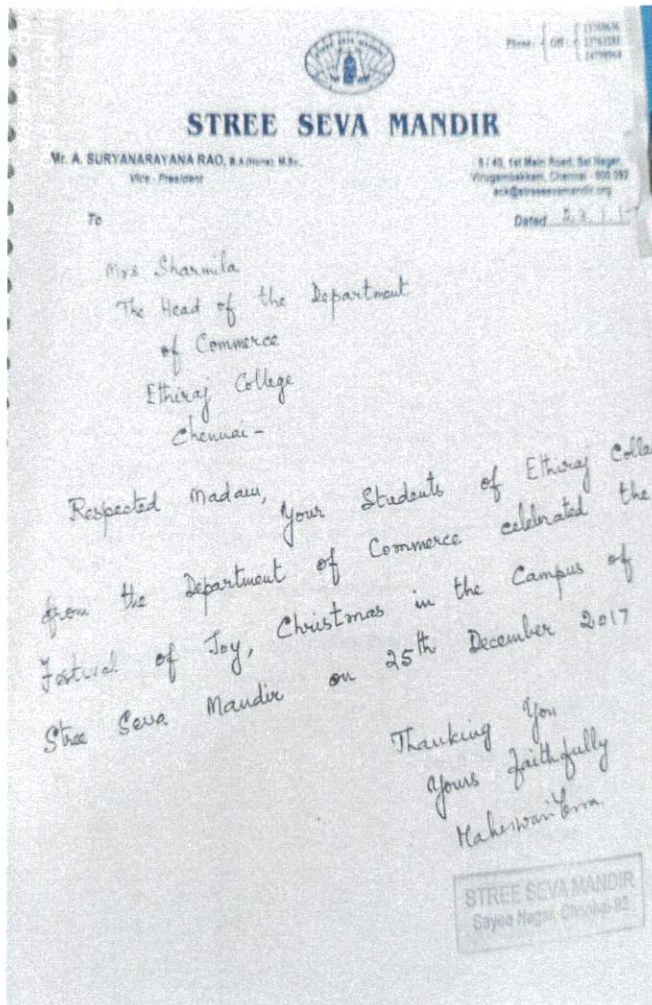 Phone : Off :
STREE SEVA MANDIR
Mr. A. SURYANARAYANA RAO, B.A (Hons), M.Sc.,
Vice - President
1st Main Road, Sai Nagar,
Virugambakkam, Chennai - 600 092
Dated
To
Mrs Sharmila
The Head of the Department
of Commerce
Ethiraj College
Chennai -
Respected Madam,
Your Students of Ethiraj Colle
from the Department of Commerce celebrated the
Festival of Joy, Christmas in the Campus of
Stree Seva Mandir on 25th December 2017
Thanking You
Yours faithfully
STREE SEVA MANDIR
Sayee Nagar, Chennai-92